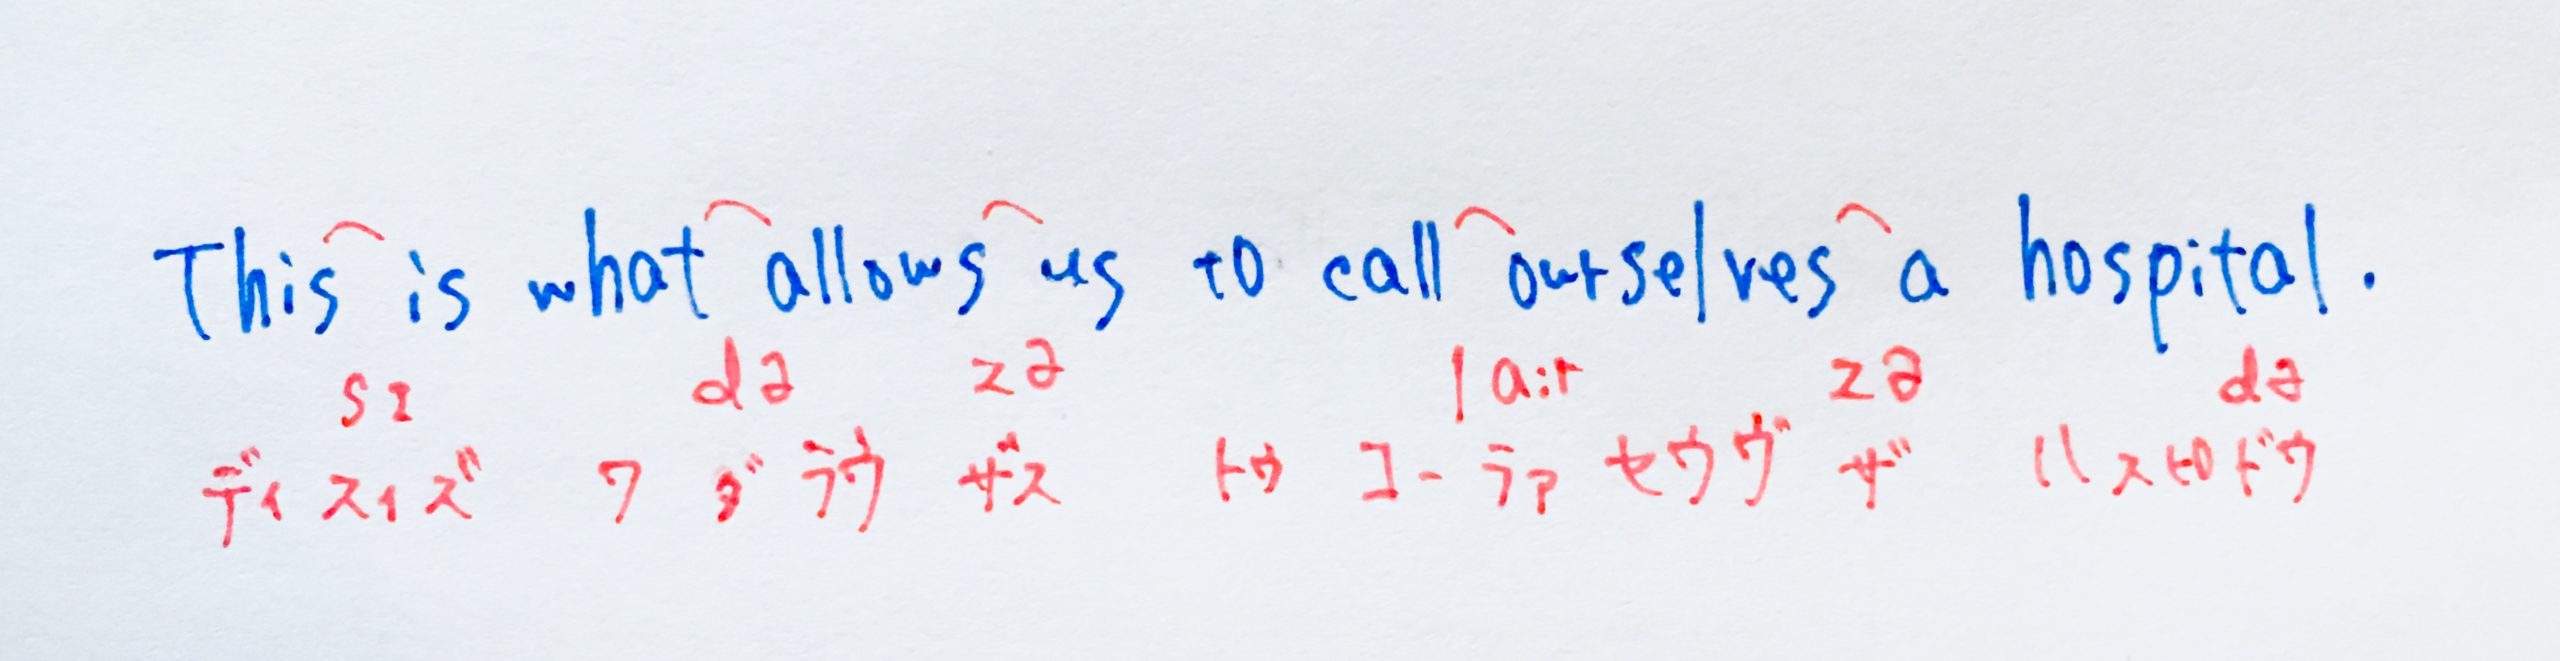 This is what allows us to call ourselves a hospital.
sɪ də zə lɑ:r zə də
ディスィズ ワダラウ ザス トゥ コーラァセウヴ ザ ハスピドウ